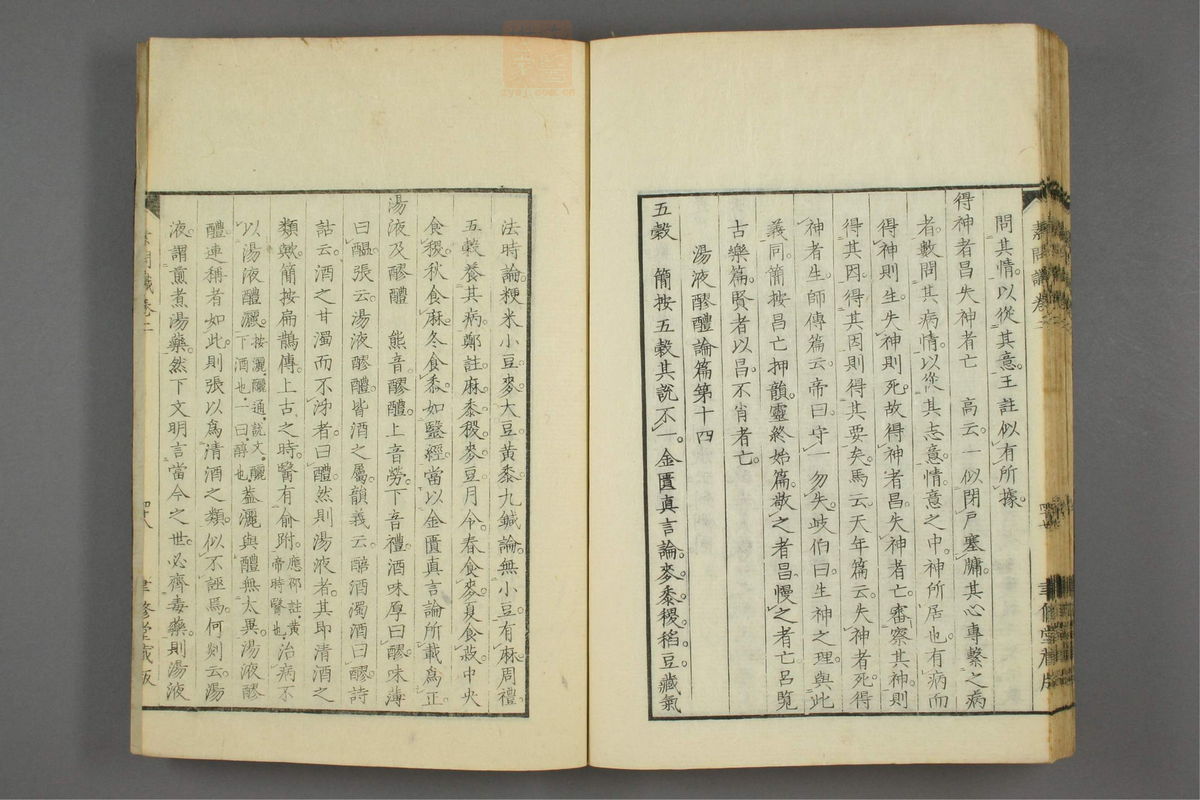 問其情。以從其意。王註似有所據。
得神者昌失神者亡　高云。一似閉戶塞牖。其心專繫之病
者。數問其病情。以從其志意。情意之中。神所居也。有病而
得神則生。失神則死。故得神者昌。失神者亡。審察其神。則
得其因。得其因則得其要矣。馬云。天年篇云。失神者死。得
神者生。師傳篇云。帝曰。守一勿失。岐伯曰。生神之理。與此
義同。簡按昌亡押韻。靈終始篇。敬之者昌。慢之者亡。呂覧
古樂篇。賢者以昌。不肖者亡。
湯液醪醴論篇第十四
五穀　簡按五穀其説不一。金匱真言論。麥黍稷稻豆。藏氣
法時論。粳米小豆麥大豆黃黍。九鍼論。無小豆有麻。周禮。
五穀養其病。鄭註。麻黍稷麥豆。月令。春食麥。夏食菽。中央
食稷。秋食麻。冬食黍。如毉經。當以金匱真言論所載爲正。
湯液及醪醴　熊音。醪醴。上音勞。下音禮。酒味厚曰醪。味薄
曰醴。張云。湯液醪醴。皆酒之屬。韻義云。醅酒濁酒曰醪。詩
詁云。酒之甘濁而不泲者。曰醴。然則湯液者。其即清酒之
類歟。簡按扁鵲傳。上古之時。毉有俞跗。應邵註。黃帝時毉也。治病不
以湯液醴灑。按灑釃通。説文。釃。下酒也。一曰。醇也。葢灑與醴無太異。湯液醪
醴連稱者如此。則張以爲清酒之類。似不誣焉。何剡云。湯
液。謂煎煮湯藥。然下文明言當今之世。必齊毒藥。則湯液
素問識卷二
聿修堂藏版